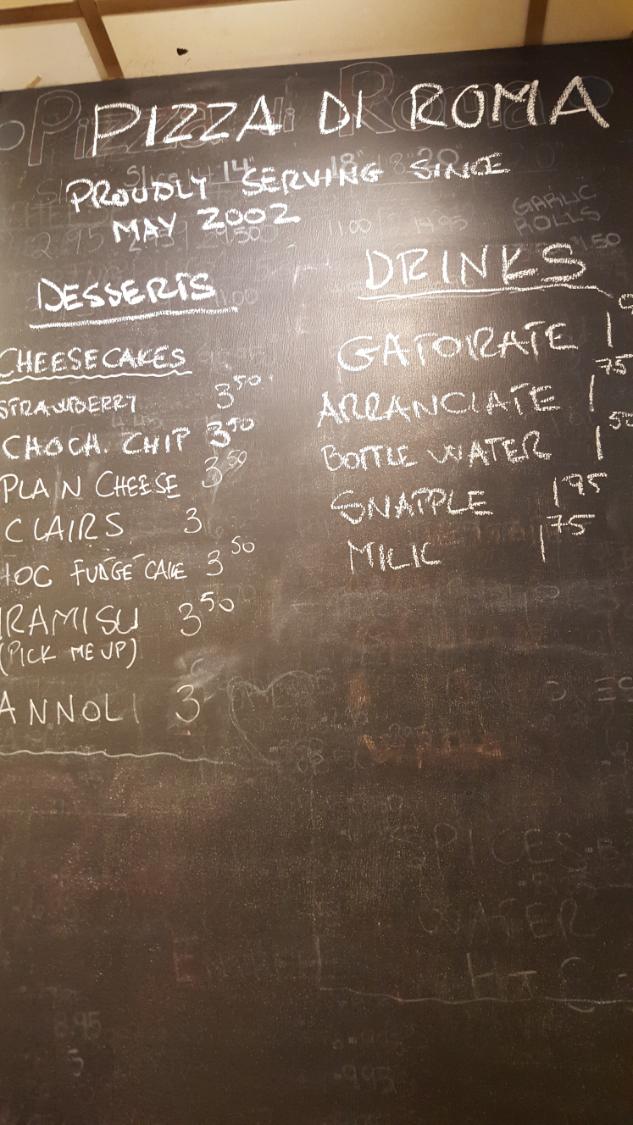 PIZZA DI ROMA
PROUDLY SERVING SINCE
MAY 2002
DESSERTS
CHEESECAKES
STRAWBERRY 3.50
CHOCH. CHIP 3.50
PLAIN CHEESE 3.50
CLAIRS 3
HOC FUDGE CAKE 3.50
IRAMISU 3.50
(PICK ME UP)
ANNOLI 3
DRINKS
GATORATE 1
ARRANCIATE 1 75
BOTTLE WATER 1 50
SNAPPLE 1 95
MILK 1 75
GARLIC
ROLLS
1.50
SPICES
WATER